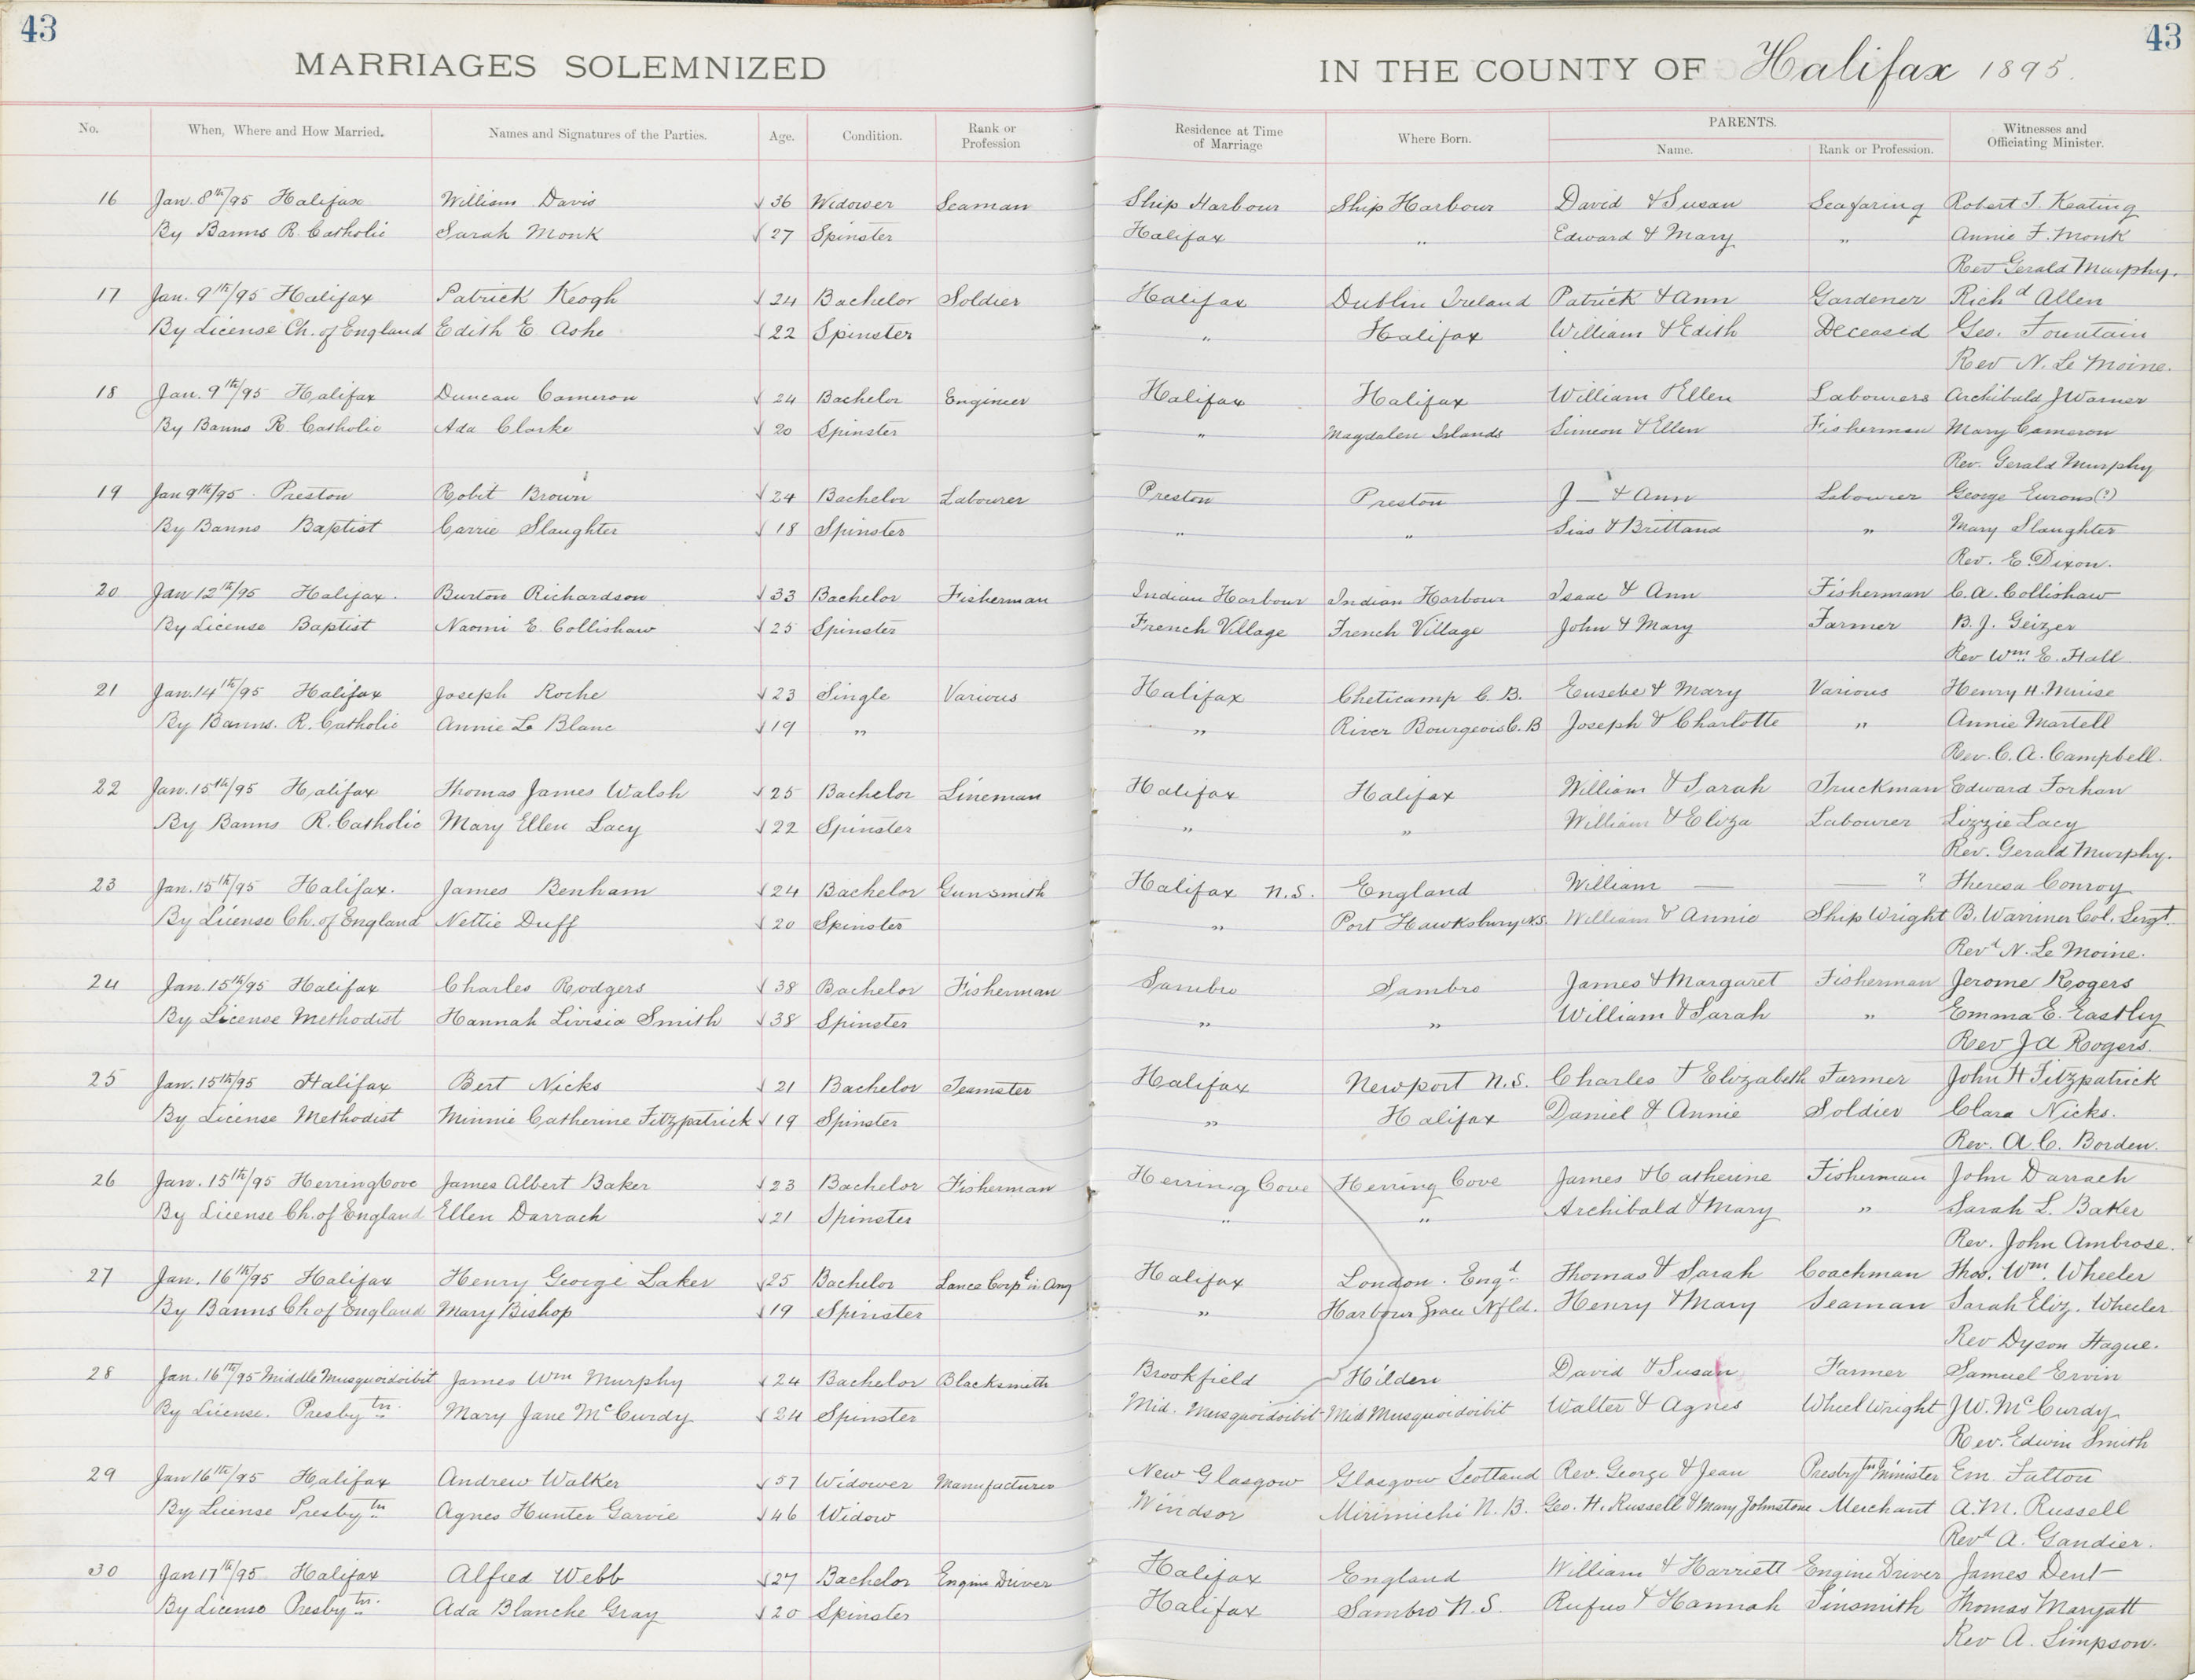 43 43
MARRIAGES SOLEMNIZED IN THE COUNTY OF Halifax 1895.
No. When, Where and How Married. Names and Signatures of the Parties. Age. Condition. Rank or Profession Residence at Time of Marriage Where Born. PARENTS. Name. Rank or Profession. Witnesses and Officiating Minister.
16 Jan. 8th/95 Halifax William Davis √ 36 Widower Seaman Ship Harbour Ship Harbour David & Susan Seafaring Robert T. Keating
By Banns R. Catholic Sarah Monk √ 27 Spinster Halifax " Edward & Mary " Annie F. Monk
Rev Gerald Murphy.
17 Jan. 9th/95 Halifax Patrick Keogh √ 24 Bachelor Soldier Halifax Dublin Ireland Patrick & Ann Gardener Richd Allen
By License Ch. of England Edith E. Ashe √ 22 Spinster " Halifax William & Edith Deceased Geo. Fountain
Rev N. Le Moine.
18 Jan. 9th/95 Halifax Duncan Cameron √ 24 Bachelor Engineer Halifax Halifax William & Ellen Labourers Archibald J Warner
By Banns R. Catholic Ada Clarke √ 20 Spinster " Magdalen Islands Simeon & Ellen Fisherman Mary Cameron
Rev. Gerald Murphy
19 Jan 9th/95. Preston Robt Brown √ 24 Bachelor Labourer Preston Preston J— & Ann Labourer George Eurons(?)
By Banns Baptist Carrie Slaughter √ 18 Spinster " " Sias & Brittana " Mary Slaughter
Rev. E. Dixon.
20 Jan 12th/95 Halifax. Burton Richardson √ 33 Bachelor Fisherman Indian Harbour Indian Harbour Isaac & Ann Fisherman C. A. Collishaw
By License Baptist Naomi E. Collishaw √ 25 Spinster French Village French Village John & Mary Farmer B. J. Geizer
Rev Wm. E. Hall
21 Jan. 14th/95 Halifax Joseph Roche √ 23 Single Various Halifax Cheticamp C. B. Eusebe & Mary Various Henry H. Muise
By Banns. R. Catholic Annie Le Blanc √ 19 " " River Bourgeois C. B Joseph & Charlotte " Annie Martell
Rev. C. A. Campbell.
22 Jan. 15th/95 Halifax Thomas James Walsh √ 25 Bachelor Lineman Halifax Halifax William & Sarah Truckman Edward Forhan
By Banns R. Catholic Mary Ellen Lacy √ 22 Spinster " " William & Eliza Labourer Lizzie Lacy
Rev. Gerald Murphy.
23 Jan. 15th/95 Halifax. James Benham √ 24 Bachelor Gunsmith Halifax N.S. England William — — ? Theresa Conroy
By License Ch. of England Nettie Duff √ 20 Spinster " Port Hawksbury N.S. William & Annie Ship Wright B. Warriner Col. Sergt.
Revd N. Le Moine.
24 Jan. 15th/95 Halifax Charles Rodgers √ 38 Bachelor Fisherman Sambro Sambro James & Margaret Fisherman Jerome Rogers
By License Methodist Hannah Livisia Smith √ 38 Spinster " " William & Sarah " Emma E. Eastley
Rev J A Rogers.
25 Jan. 15th/95 Halifax Bert Nicks √ 21 Bachelor Teamster Halifax Newport N.S. Charles & Elizabeth Farmer John H Fitzpatrick
By License Methodist Minnie Catherine Fitzpatrick √ 19 Spinster " Halifax Daniel & Annie Soldier Clara Nicks.
Rev. A. C. Borden.
26 Jan. 15th/95 Herring Cove James Albert Baker √ 23 Bachelor Fisherman Herring Cove Herring Cove James & Catherine Fisherman John Darrach
By License Ch. of England Ellen Darrach √ 21 Spinster " " Archibald & Mary " Sarah L. Baker
Rev. John Ambrose.
27 Jan. 16th/95 Halifax Henry George Laker √ 25 Bachelor Lance Corpl in Amy Halifax London. Engd Thomas & Sarah Coachman Thos. Wm. Wheeler
By Banns Ch of England Mary Bishop √ 19 Spinster " Harbour Grace Nfld. Henry & Mary Seaman Sarah Eliz. Wheeler
Rev Dyson Hague.
28 Jan. 16th/95 Middle Musquoidoibit James Wm Murphy √ 24 Bachelor Blacksmith Brookfield Hilden David & Susan Farmer Samuel Ervin
By License. Presbytn. Mary Jane McCurdy √ 24 Spinster Mid. Musquoidoibit Mid Musquoidoibit Walter & Agnes Wheel Wright J W. McCurdy
Rev. Edwin Smith
29 Jan 16th/95 Halifax Andrew Walker √ 57 Widower Manufacturer New Glasgow Glasgow Scotland Rev. George & Jean Presbytn Minister Em. Fatton
By License Presbytn Agnes Hunter Garvie √ 46 Widow Windsor Mirimichi N. B. Geo. H. Russell & Mary Johnstone Merchant A. M. Russell
Revd A. Gandier.
30 Jan 17th/95 Halifax Alfred Webb √ 27 Bachelor Engine Driver Halifax England William & Harriett Engine Driver James Dent
By License Presbytn. Ada Blanche Gray √ 20 Spinster Halifax Sambro N. S. Rufus & Hannah Tinsmith Thomas Maryatt
Rev A. Simpson.